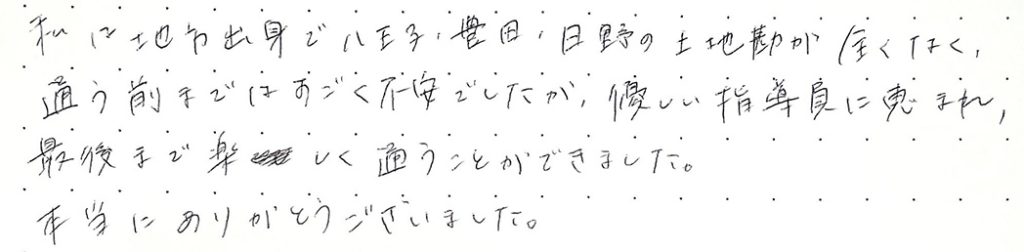 私は地方出身で八王子、豊田、日野の土地勘が全くなく、
通う前まではすごく不安でしたが、優しい指導員に恵まれ、
最後まで楽しく通うことができました。
本当にありがとうございました。